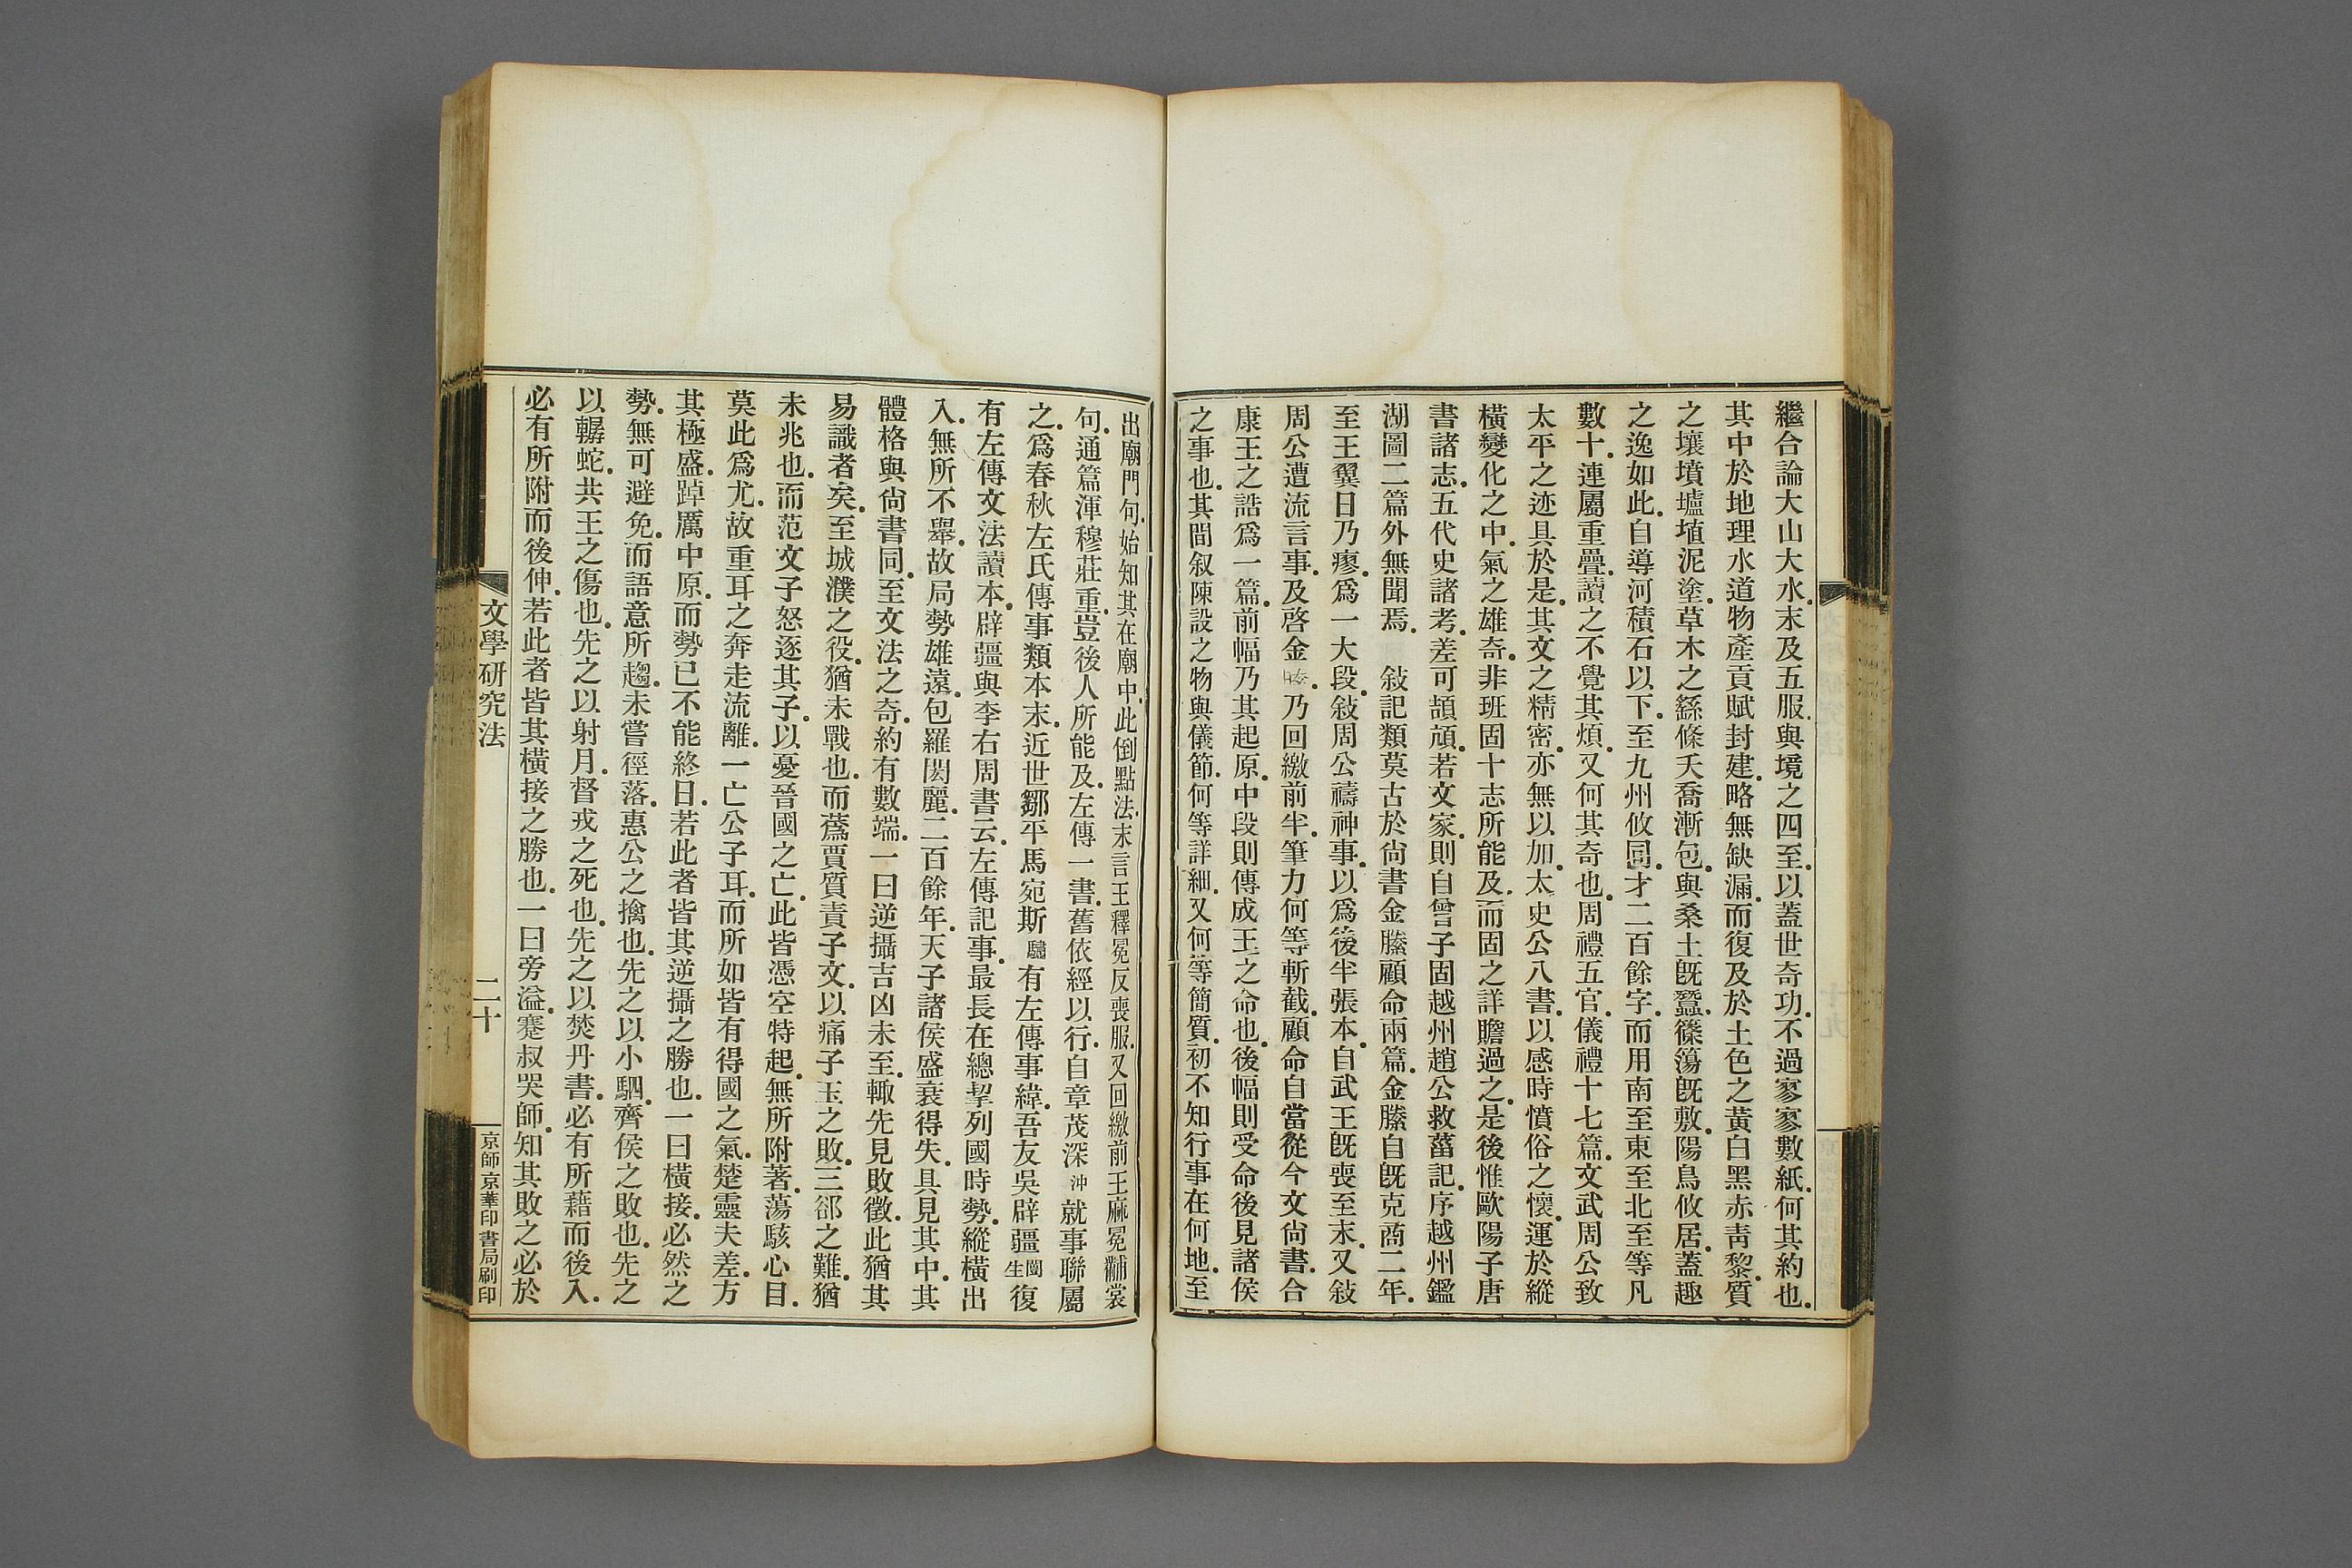 繼合論大山大水.末及五服.與境之四至.以蓋世奇功.不過寥寥數紙.何其約也.
其中於地理水道物產貢賦封建.略無缺漏.而復及於土色之黃白黑赤靑黎.質
之壤墳壚埴泥塗.草木之繇條夭喬漸包.與桑土旣蠶.篠簜旣敷.陽鳥攸居.蓋趣
之逸如此.自導河積石以下.至九州攸同.才二百餘字.而用南至東至北至等凡
數十.連屬重疊.讀之不覺其煩.又何其奇也.周禮五官.儀禮十七篇.文武周公致
太平之迹具於是.其文之精密.亦無以加.太史公八書.以感時憤俗之懷.運於縱
橫變化之中.氣之雄奇.非班固十志所能及.而固之詳贍過之.是後惟歐陽子唐
書諸志.五代史諸考.差可頡頏.若文家.則自曾子固越州趙公救菑記.序越州鑑
湖圖二篇外無聞焉. 敍記類莫古於尙書金縢顧命兩篇.金縢自旣克商二年.
至王翼日乃瘳.爲一大段.敍周公禱神事.以爲後半張本.自武王旣喪至末.又敍
周公遭流言事.及啓金縢.乃回繳前半.筆力何等斬截.顧命自當從今文尙書.合
康王之誥爲一篇.前幅乃其起原.中段則傳成王之命也.後幅則受命後見諸侯
之事也.其間叙陳設之物與儀節.何等詳細.又何等簡質.初不知行事在何地.至
出廟門句.始知其在廟中.此倒點法.末言王釋冕反喪服.又回繳前王麻冕黼裳
句.通篇渾穆莊重.豈後人所能及.左傳一書.舊依經以行.自章茂深沖就事聯屬
之.爲春秋左氏傳事類本末.近世鄒平馬宛斯驌有左傳事緯.吾友吳辟疆闓生復
有左傳文法讀本.辟疆與李右周書云.左傳記事.最長在總挈列國時勢.縱橫出
入.無所不舉.故局勢雄遠.包羅閎麗.二百餘年.天子諸侯盛衰得失.具見其中.其
體格與尙書同.至文法之奇.約有數端.一曰逆攝.吉凶未至.輒先見敗徵.此猶其
易識者矣.至城濮之役.猶未戰也.而蒍賈質責子文.以痛子玉之敗.三郤之難.猶
未兆也.而范文子怒逐其子.以憂晉國之亡.此皆憑空特起.無所附著.蕩駭心目.
莫此爲尤.故重耳之奔走流離.一亡公子耳.而所如皆有得國之氣.楚靈夫差.方
其極盛.踔厲中原.而勢已不能終日.若此者皆其逆攝之勝也.一曰橫接.必然之
勢.無可避免.而語意所趨.未嘗徑落.惠公之擒也.先之以小駟.齊侯之敗也.先之
以轏蛇.共王之傷也.先之以射月.督戎之死也.先之以焚丹書.必有所藉而後入.
必有所附而後伸.若此者皆其橫接之勝也.一曰旁溢.蹇叔哭師.知其敗之必於
文學研究法
二十
京師京華印書局刷印